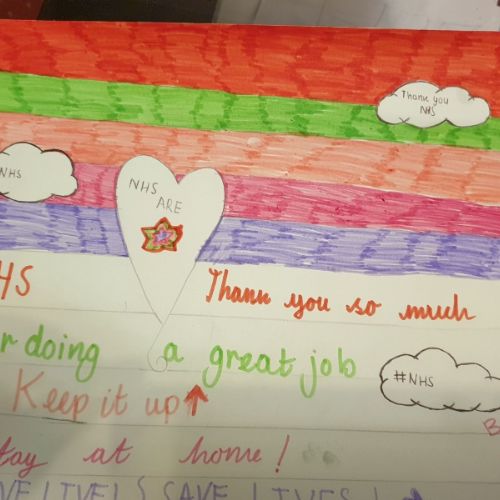 Thank you
NHS
NHS
NHS
ARE
HS Thank you so much
r doing a great job
#NHS
Keep it up
tay at home!
SAVE LIVES